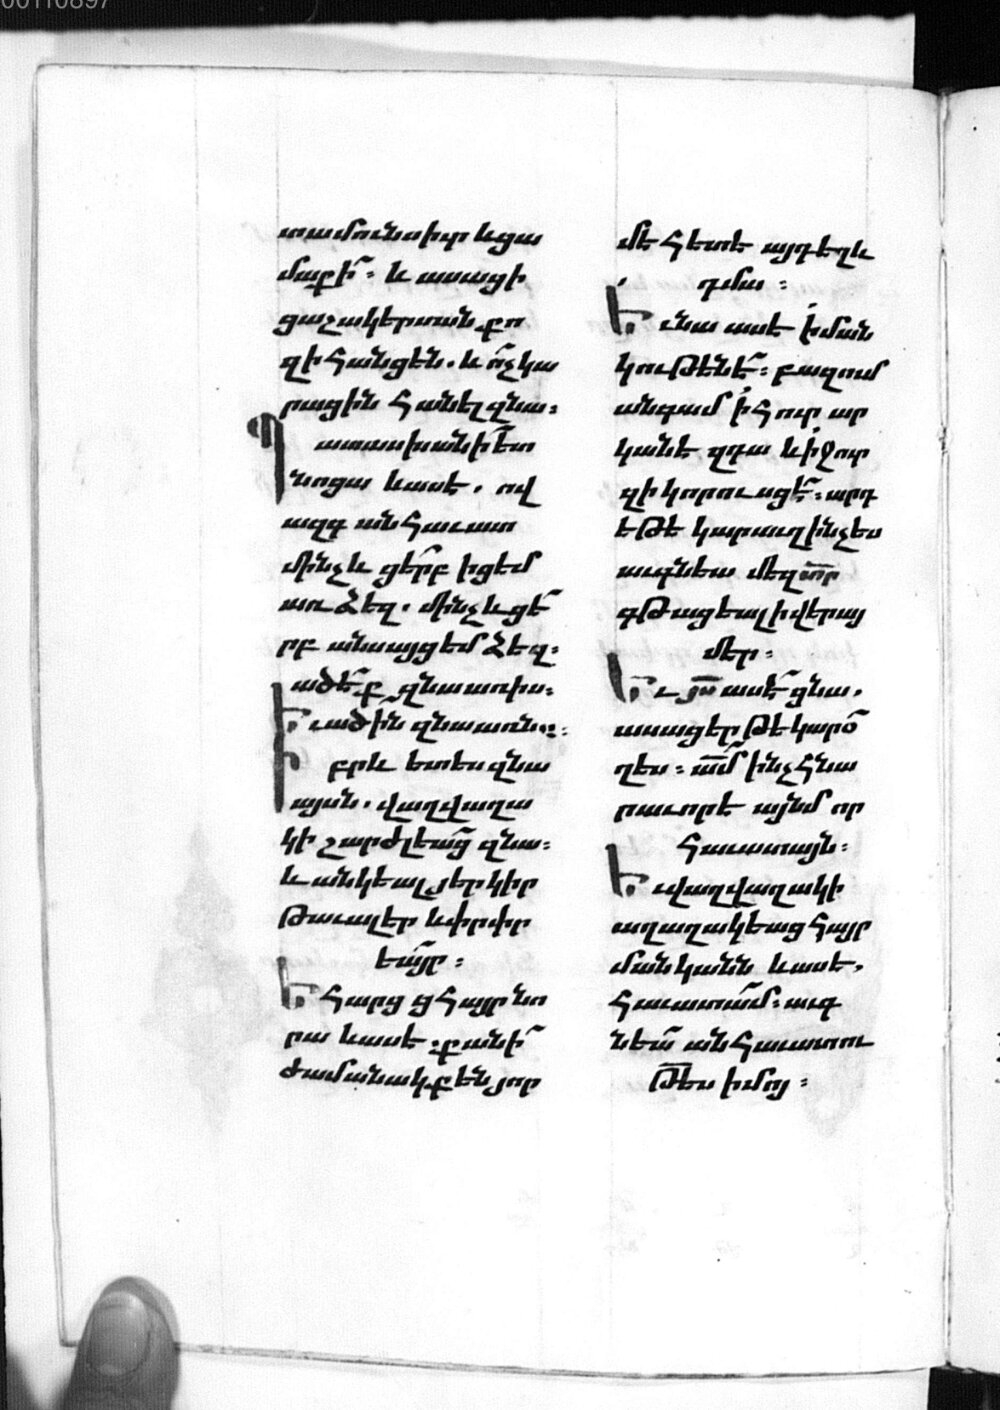 00110897
տամունսիտ ևցա
մաքի՟։ և ասացի
ցաշակերտան քո
զի հանցեն. և ո՟չ կա
րացին հանել զնա։
Պատասխանի ե՟տ
նոցա ևասէ. ով
ազգ անհաւատ
մինչև ցե՟րբ իցեմ
առ ձեզ. մինչևցե՟
րբ անսայցեմ ձեզ։
ածե՟ք զնաառիս։
Եւածի՟ն զնաառնա։
Իբրև ետես զնա
այսն. վաղվաղա
կի շարժլեա՟ց զնա։
և անկեալ յերկիր
թաւալէր ևփրփր
եա՟յր։
Եհարց ց հայր նո
րա ևասէ. քանի՟
ժամանակք են յոր
մէ հետէ այդեղև
դմա։
Ենա ասէ ի ման
կութենէ՟։ բազում
անգամ ի հուր ար
կանէ զդա ևի ջուր
զի կորուսցէ՟։ արդ
եթէ կարաւղ ինչես
աւգնեա մեզ տր
գթացեալ ի վերայ
մեր։
Եւ յս ասէ՟ ցնա.
ասացեր թէ կարօ՟
ղես։ ամ ինչ հնա
րաւորէ այնմ որ
հաւատայն։
Եւվաղվաղակի
աղաղակեաց հայր
մանկանն ևասէ.
հաւատամ։ աւգ
նեա՟ անհաւատու
թես իմոյ։